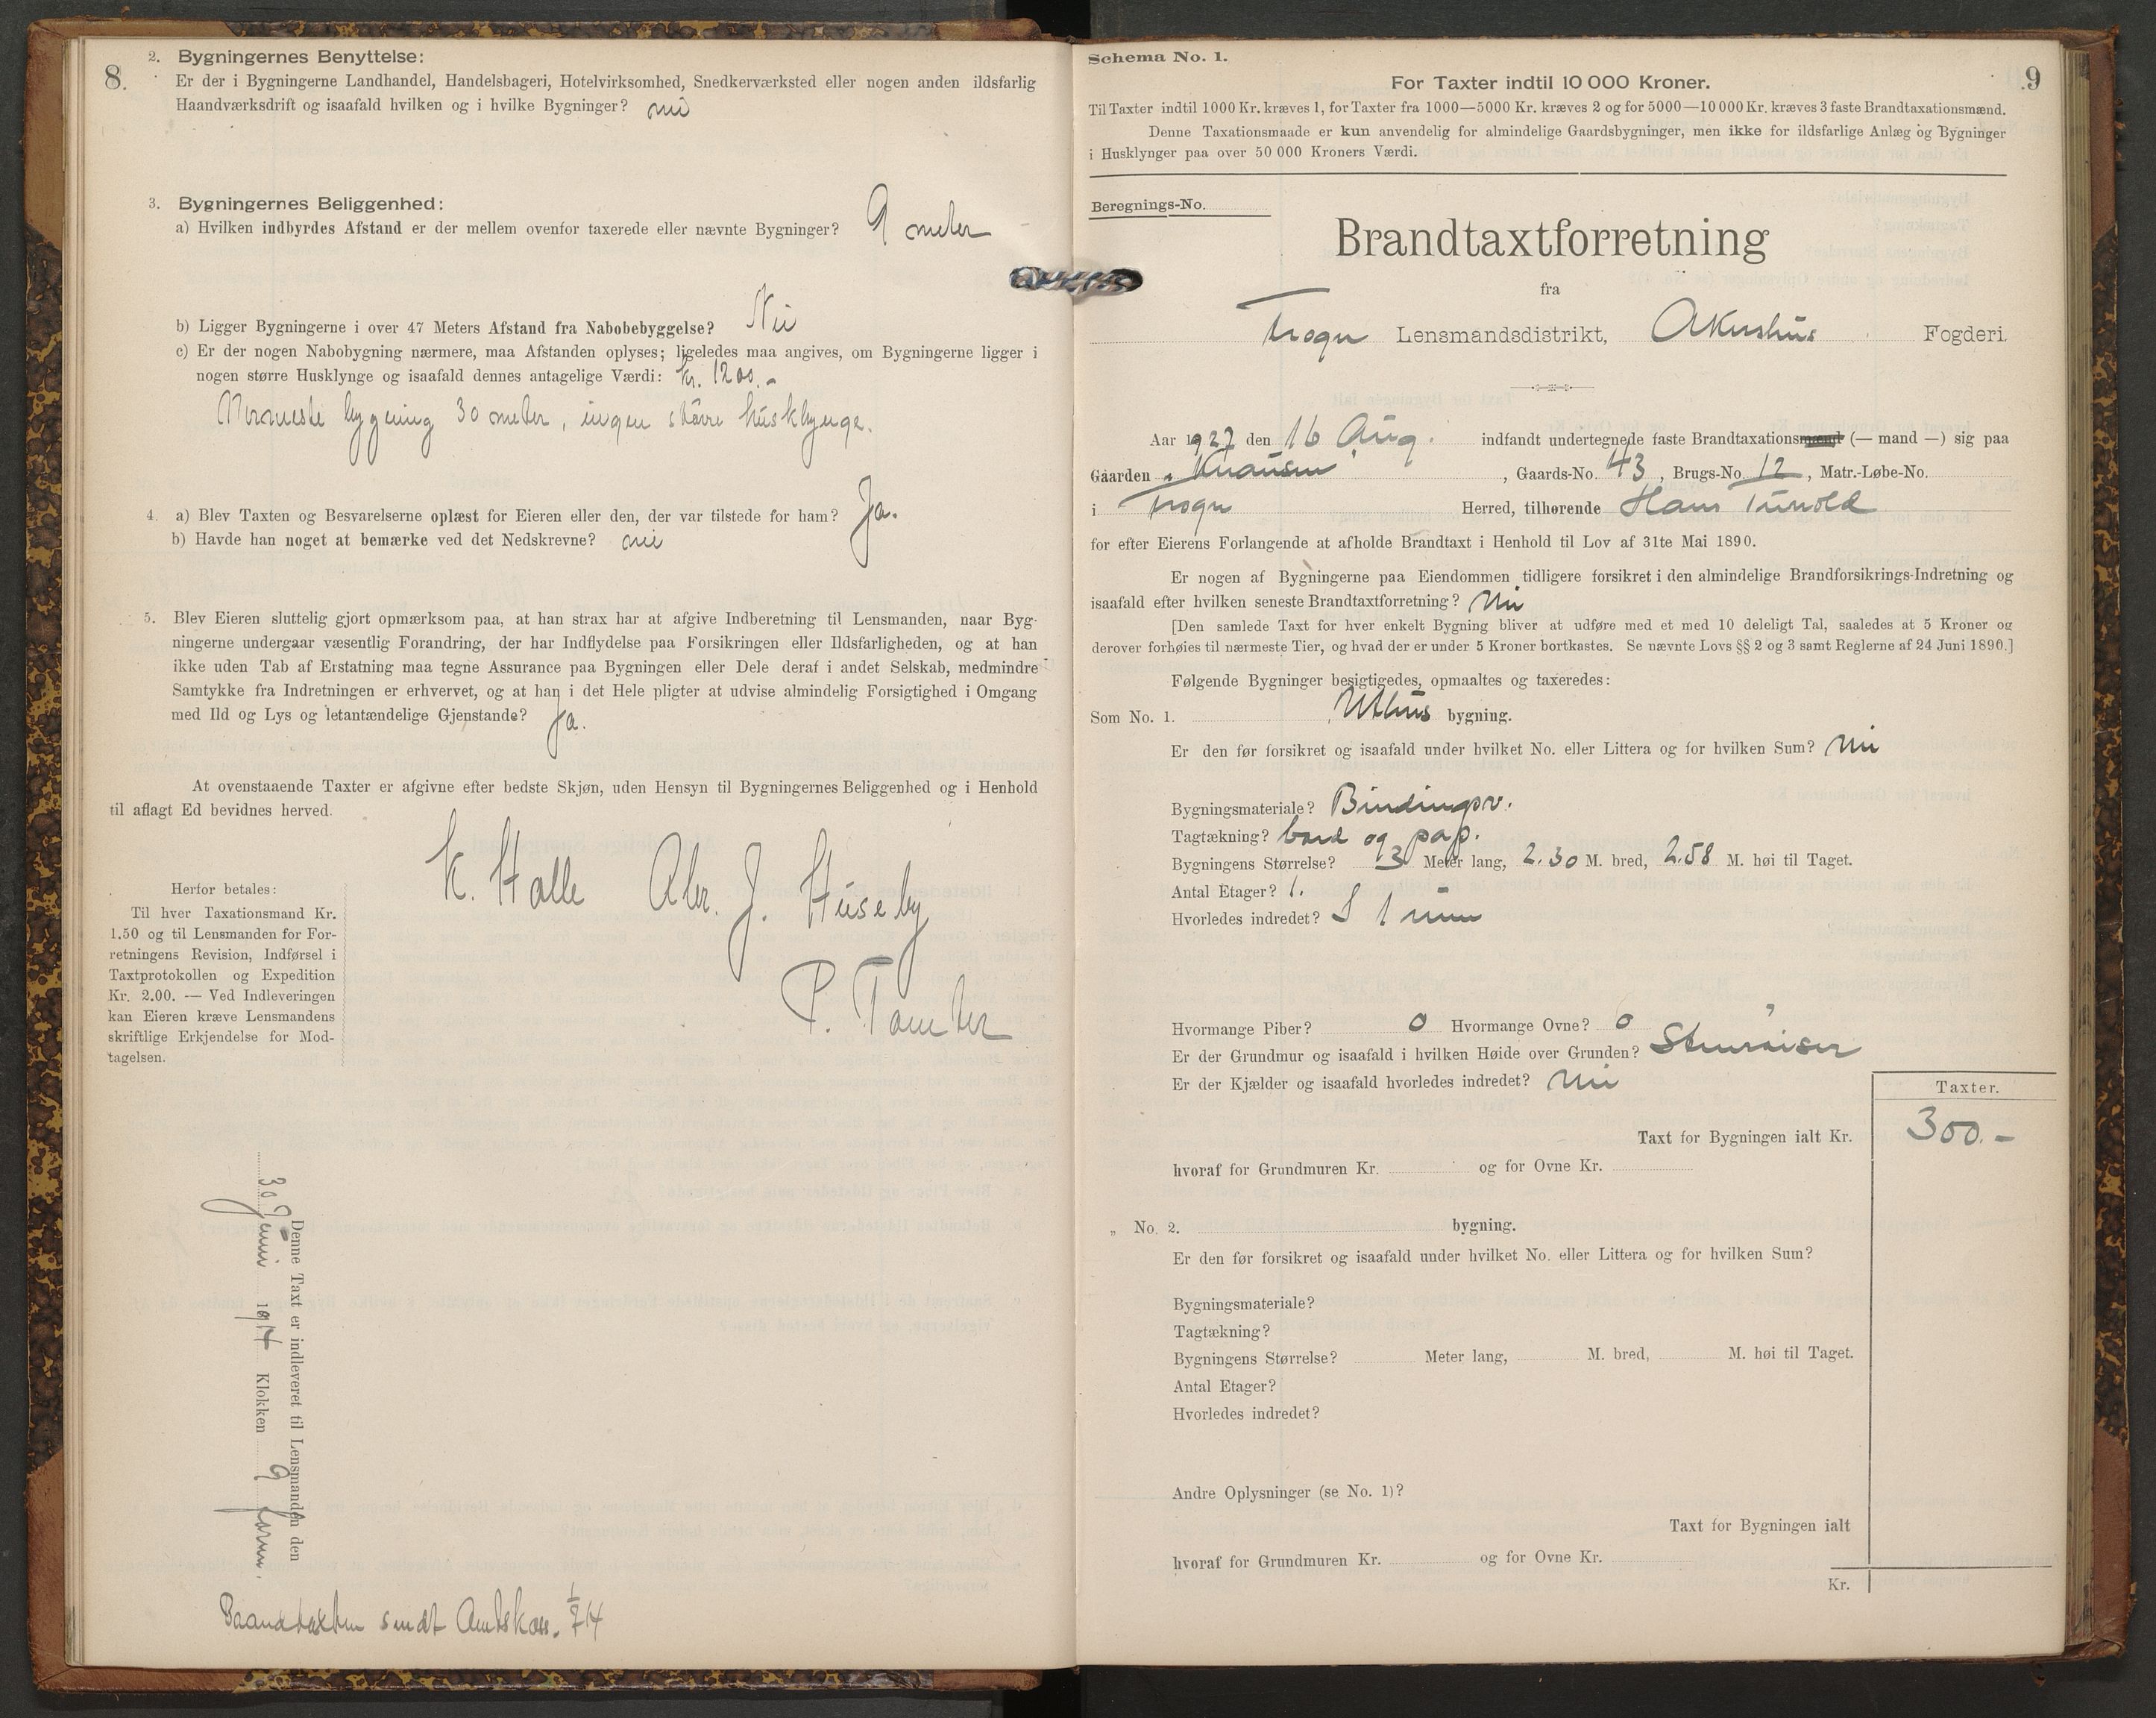 8.
2. Bygningernes Benyttelse:
Er der i Bygningerne Landhandel, Handelsbageri, Hotelvirksomhed, Snedkerværksted eller nogen anden ildsfarlig
Haandværksdrift og isaafald hvilken og i hvilke Bygninger? nei
3. Bygningernes Beliggenhed:
a) Hvilken indbyrdes Afstand er der mellem ovenfor taxerede eller nævnte Bygninger? 9 meter
b) Ligger Bygningerne i over 47 Meters Afstand fra Nabobebyggelse? Nei
c) Er der nogen Nabobygning nærmere, maa Afstanden oplyses; ligeledes maa angives, om Bygningerne ligger i
nogen større Husklynge og isaafald dennes antagelige Værdi: kr. 1200.-
Nærmeste bygning 30 meter, ingen större husklynge.
4. a) Blev Taxten og Besvarelserne oplæst for Eieren eller den, der var tilstede for ham? Ja.
b) Havde han noget at bemærke ved det Nedskrevne? nei
5. Blev Eieren sluttelig gjort opmærksom paa, at han strax har at afgive Indberetning til Lensmanden, naar Byg-
ningerne undergaar væsentlig Forandring, der har Indflydelse paa Forsikringen eller Ildsfarligheden, og at han
ikke uden Tab af Erstatning maa tegne Assurance paa Bygningen eller Dele deraf i andet Selskab, medmindre
Samtykke fra Indretningen er erhvervet, og at han i det Hele pligter at udvise almindelig Forsigtighed i Omgang
med Ild og Lys og letantændelige Gjenstande? Ja.
At ovenstaaende Taxter er afgivne efter bedste Skjøn, uden Hensyn til Bygningernes Beliggenhed og i Henhold
til aflagt Ed bevidnes herved.
K. Halle J. Huseby
P. Tomter
Herfor betales:
Til hver Taxationsmand Kr.
1.50 og til Lensmanden for For-
retningens Revision, Indførsel i
Taxtprotokollen og Expedition
Kr. 2.00. — Ved Indleveringen
kan Eieren kræve Lensmandens
skriftlige Erkjendelse for Mod-
tagelsen.
Denne Taxt er indleveret til Lensmanden den
30 Juni 1914 Klokken 9 form.
Brandtaxten sendt Amtskass. 1/7 14
9
Schema No. 1.
For Taxter indtil 10 000 Kroner.
Til Taxter indtil 1000 Kr. kræves 1, for Taxter fra 1000—5000 Kr. kræves 2 og for 5000—10 000 Kr. kræves 3 faste Brandtaxationsmænd.
Denne Taxationsmaade er kun anvendelig for almindelige Gaardsbygninger, men ikke for ildsfarlige Anlæg og Bygninger
i Husklynger paa over 50 000 Kroners Værdi.
Beregnings-No.
Brandtaxtforretning
fra
Frogn Lensmandsdistrikt, Akershus Fogderi.
Aar 1927 den 16 Aug. indfandt undertegnede faste Brandtaxationsmænd (— mand —) sig paa
Gaarden Knausen, Gaards-No. 43, Brugs-No. 12, Matr.-Løbe-No.
i Frogn Herred, tilhørende Hans
for efter Eierens Forlangende at afholde Brandtaxt i Henhold til Lov af 31te Mai 1890.
Er nogen af Bygningerne paa Eiendommen tidligere forsikret i den almindelige Brandforsikrings-Indretning og
isaafald efter hvilken seneste Brandtaxtforretning? Nei
[Den samlede Taxt for hver enkelt Bygning bliver at udføre med et med 10 deleligt Tal, saaledes at 5 Kroner og
derover forhøies til nærmeste Tier, og hvad der er under 5 Kroner bortkastes. Se nævnte Lovs §§ 2 og 3 samt Reglerne af 24 Juni 1890.]
Følgende Bygninger besigtigedes, opmaaltes og taxeredes:
Som No. 1. Uthus bygning.
Er den før forsikret og isaafald under hvilket No. eller Littera og for hvilken Sum? Nei
Bygningsmateriale? Bindingsv.
Tagtækning? bord og pap.
Bygningens Størrelse? 3 Meter lang, 2.30 M. bred, 2.58 M. høi til Taget.
Antal Etager? 1.
Hvorledes indredet? I 1 rum
Hvormange Piber? 0 Hvormange Ovne? 0
Er der Grundmur og isaafald i hvilken Høide over Grunden?
Er der Kjælder og isaafald hvorledes indredet? Nei
Taxter.
Taxt for Bygningen ialt Kr. 300.-
hvoraf for Grundmuren Kr. og for Ovne Kr.
„ No. 2. bygning.
Er den før forsikret og isaafald under hvilket No. eller Littera og for hvilken Sum?
Bygningsmateriale?
Tagtækning?
Bygningens Størrelse? Meter lang, M. bred, M. høi til Taget.
Antal Etager?
Hvorledes indredet?
Andre Oplysninger (se No. 1)?
Taxt for Bygningen ialt
hvoraf for Grundmuren Kr. og for Ovne Kr.
Kr.